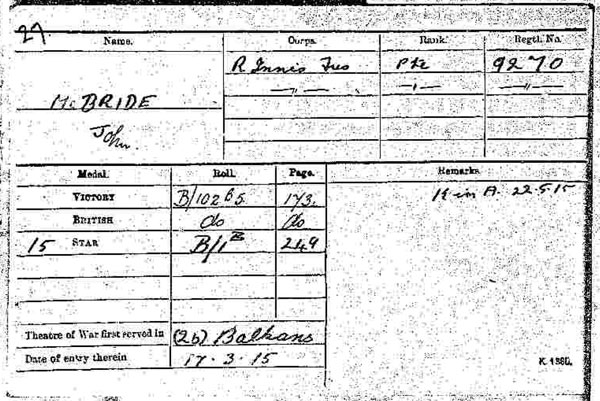 27.
Name. Corps. Rank. Regtl. No.
McBRIDE R Innis Fus Pte 9270
John. —"— —"— —"—
Medal. Roll. Page. Remarks.
VICTORY B/102 B5 173. K in A. 22.5.15
BRITISH do do
15 STAR B/1B 249
Theatre of War first served in (2b) Balkans
Date of entry therein 17.3.15
K. 1380.